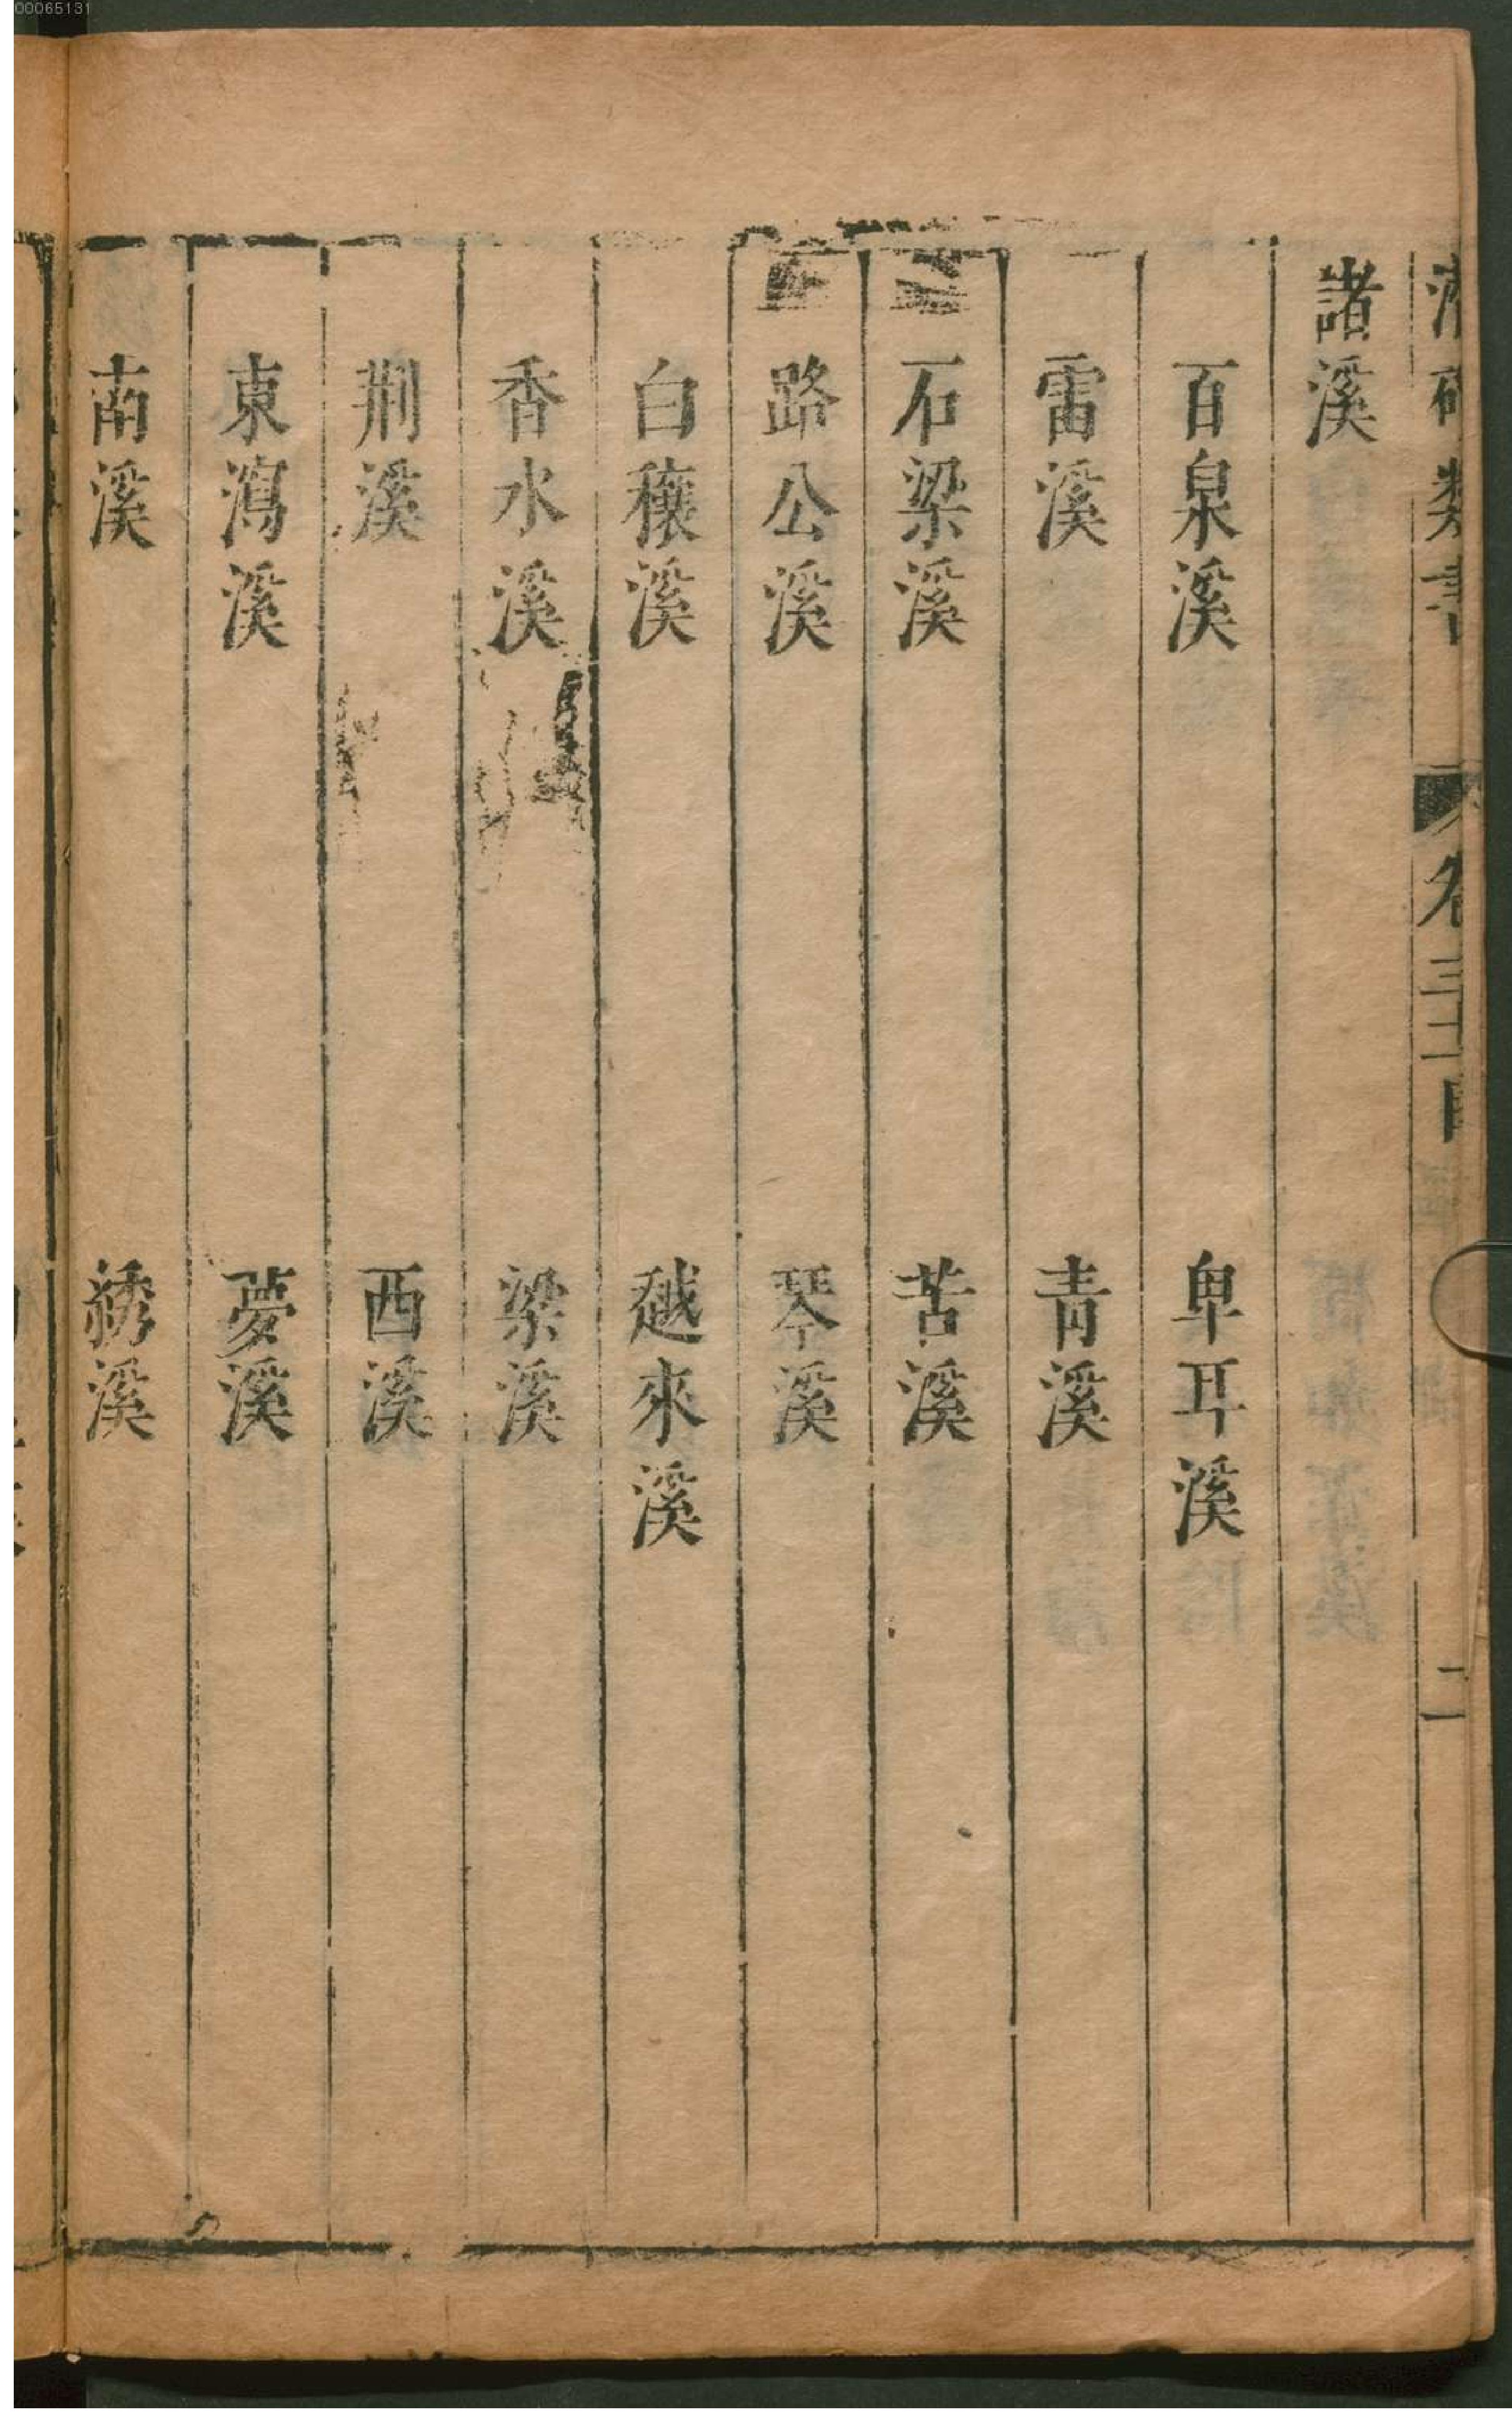 00065131
潛確類書
卷三十
二
諸溪
百泉溪 卑耳溪
雷溪 青溪
石梁溪 苦溪
路公溪 琴溪
白穰溪 越來溪
香水溪 梁溪
荆溪 西溪
東瀉溪 夢溪
南溪 綉溪